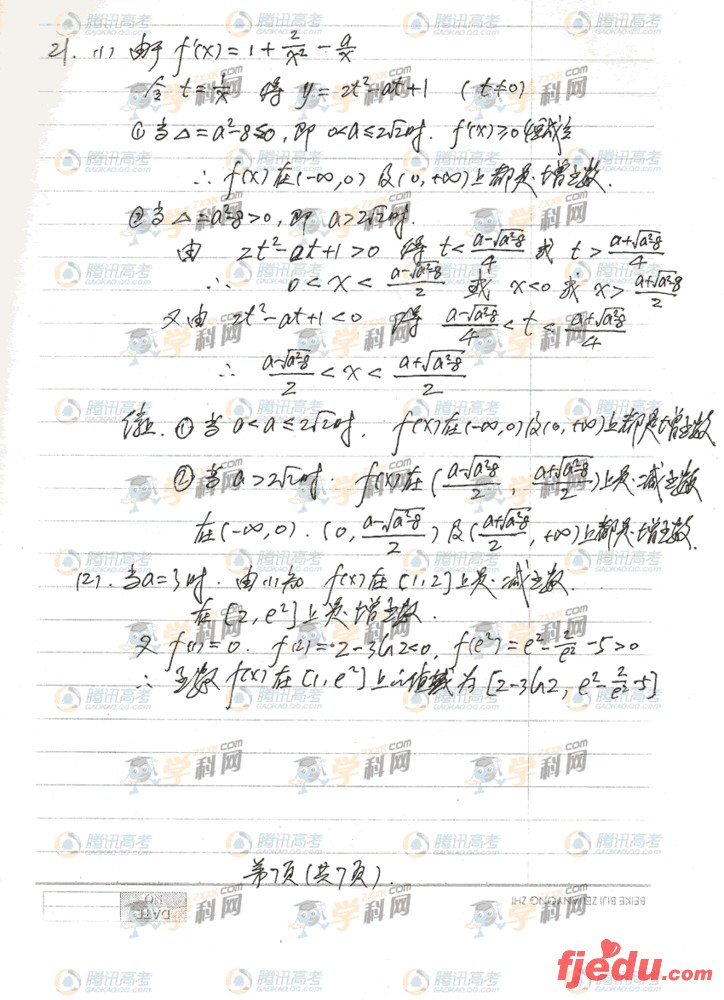 21. (1) 由于 f'(x) = 1 + 2/x² - a/x
令 t = 1/x 得 y = 2t² - at + 1 (t≠0)
① 当 Δ = a² - 8 ≤ 0, 即 0<a≤2√2 时. f'(x) ≥ 0 恒成立
∴ f(x) 在 (-∞,0) 及 (0,+∞) 上都是增函数.
② 当 Δ = a²-8 > 0, 即 a > 2√2 时.
由 2t² - at + 1 > 0 得 t < (a-√(a²-8))/4 或 t > (a+√(a²-8))/4
∴ 0 < x < (a-√(a²-8))/2 或 x<0 或 x > (a+√(a²-8))/2
又由 2t² - at + 1 < 0 得 (a-√(a²-8))/4 < t < (a+√(a²-8))/4
∴ (a-√(a²-8))/2 < x < (a+√(a²-8))/2
综上. ① 当 0<a≤2√2 时. f(x) 在 (-∞,0) 及 (0,+∞) 上都是增函数
② 当 a>2√2 时. f(x) 在 ((a-√(a²-8))/2, (a+√(a²-8))/2) 上是减函数
在 (-∞,0). (0, (a-√(a²-8))/2) 及 ((a+√(a²-8))/2, +∞) 上都是增函数.
(2). 当 a=3 时. 由 (1) 知 f(x) 在 [1,2] 上是减函数.
在 [2, e²] 上是增函数.
又 f(1)=0. f(2)=2-3ln2<0. f(e²)=e²-2/e²-5>0
∴ 函数 f(x) 在 [1,e²] 上的值域为 [2-3ln2, e²-2/e²-5]
第7页(共7页).
DATE
NO
BEIKE BIJI ZEJUANYONG ZHI
腾讯高考
GAOKAO.QQ.COM
学科网
ZXXK.com
fjedu.com